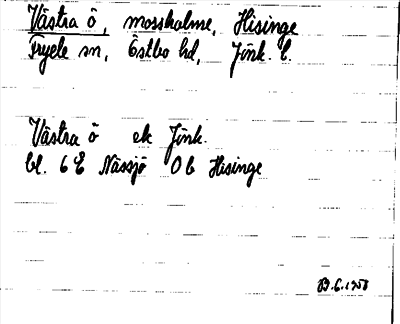 Västra ö, mossholme, Hisinge
Fryele sn, Östbo hd, Jönk. l.
Västra ö ek Jönk.
bl. 6 E Nässjö 0 b Hisinge